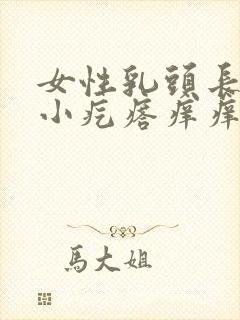 女性乳頭長
小疙瘩痒痒
馬大姐